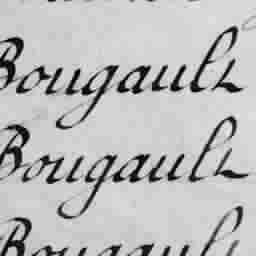 Bougault
Bougault
Bougault